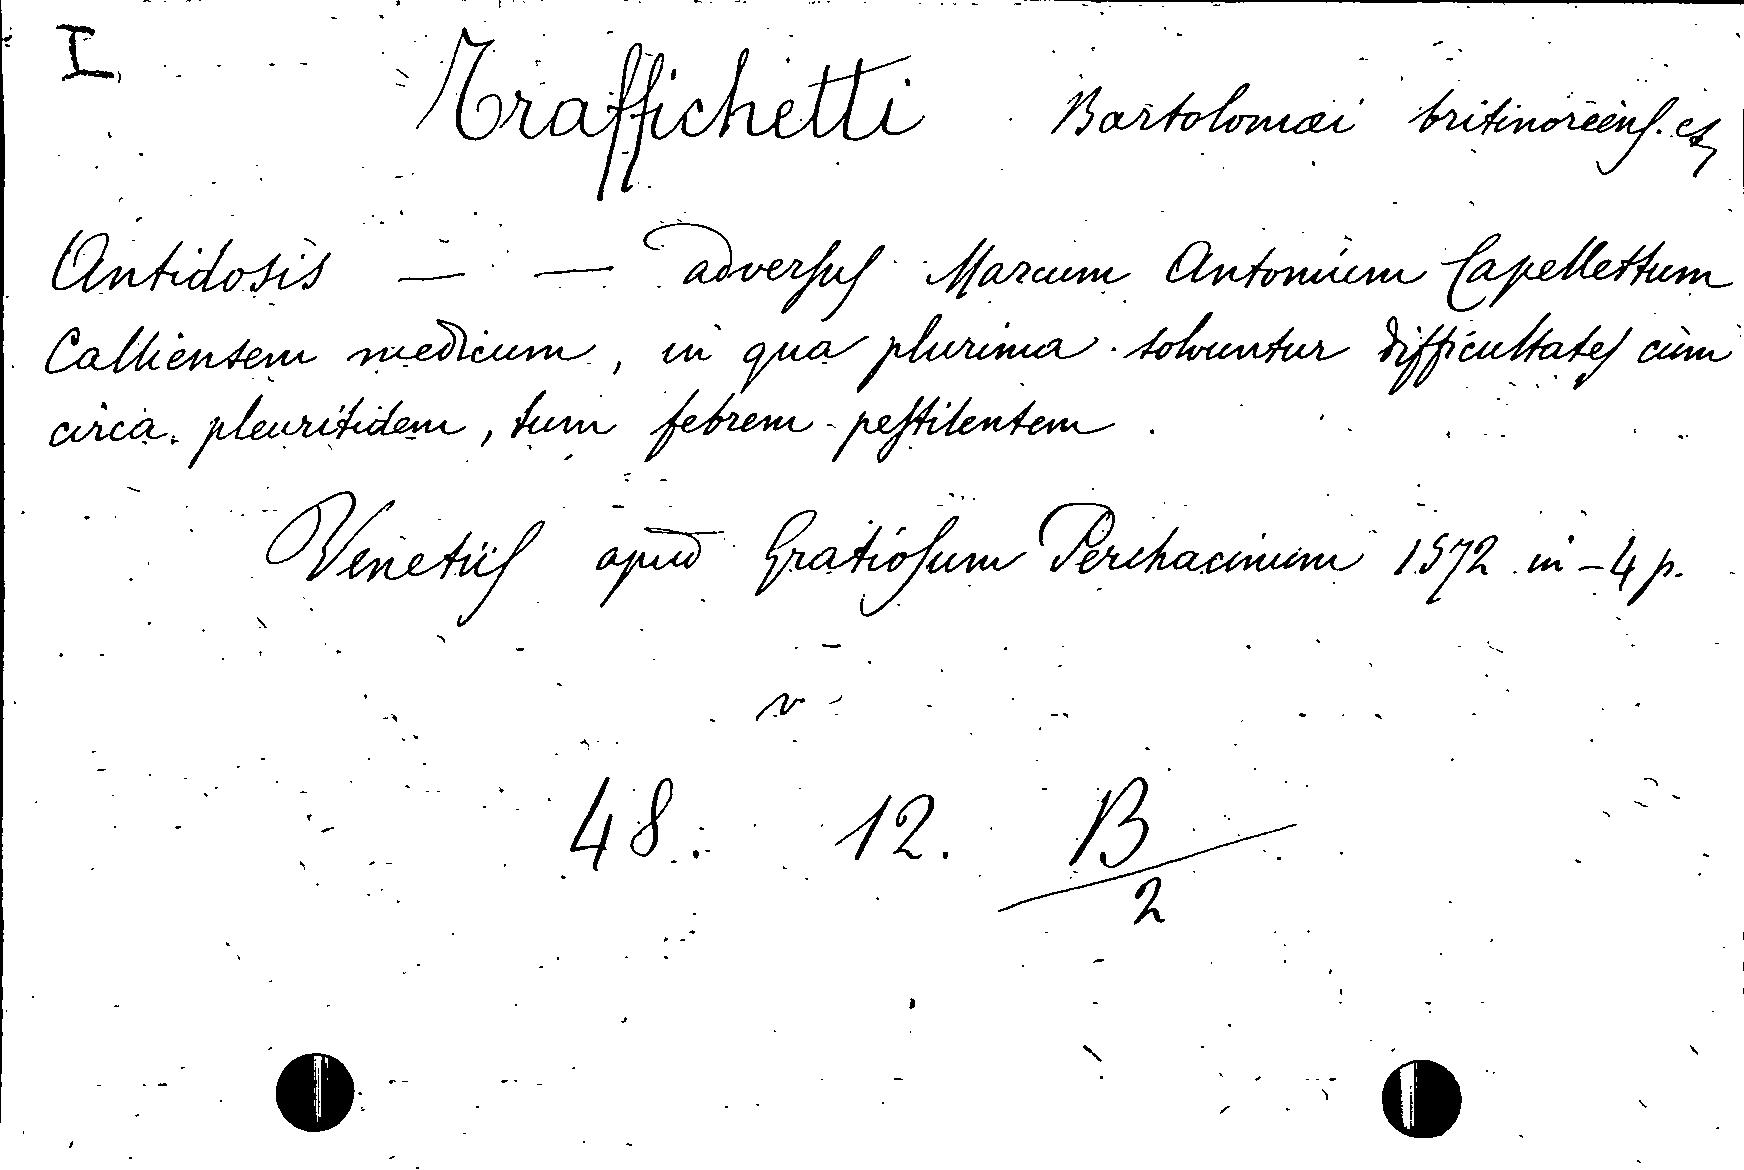 I
Traffichetti Bartolomæi britinoreenſ. et
Antidosis — — adverſuſ Marcum Antonium Capellettum
Calliensem medicum, in qua plurima solvuntur difficultateſ cùm
circa pleuritidem, tum febrem peſtilentem.
Venetiiſ apud Gratioſum Perchacinum 1572 in-4 p.
v
48. 12. B
2